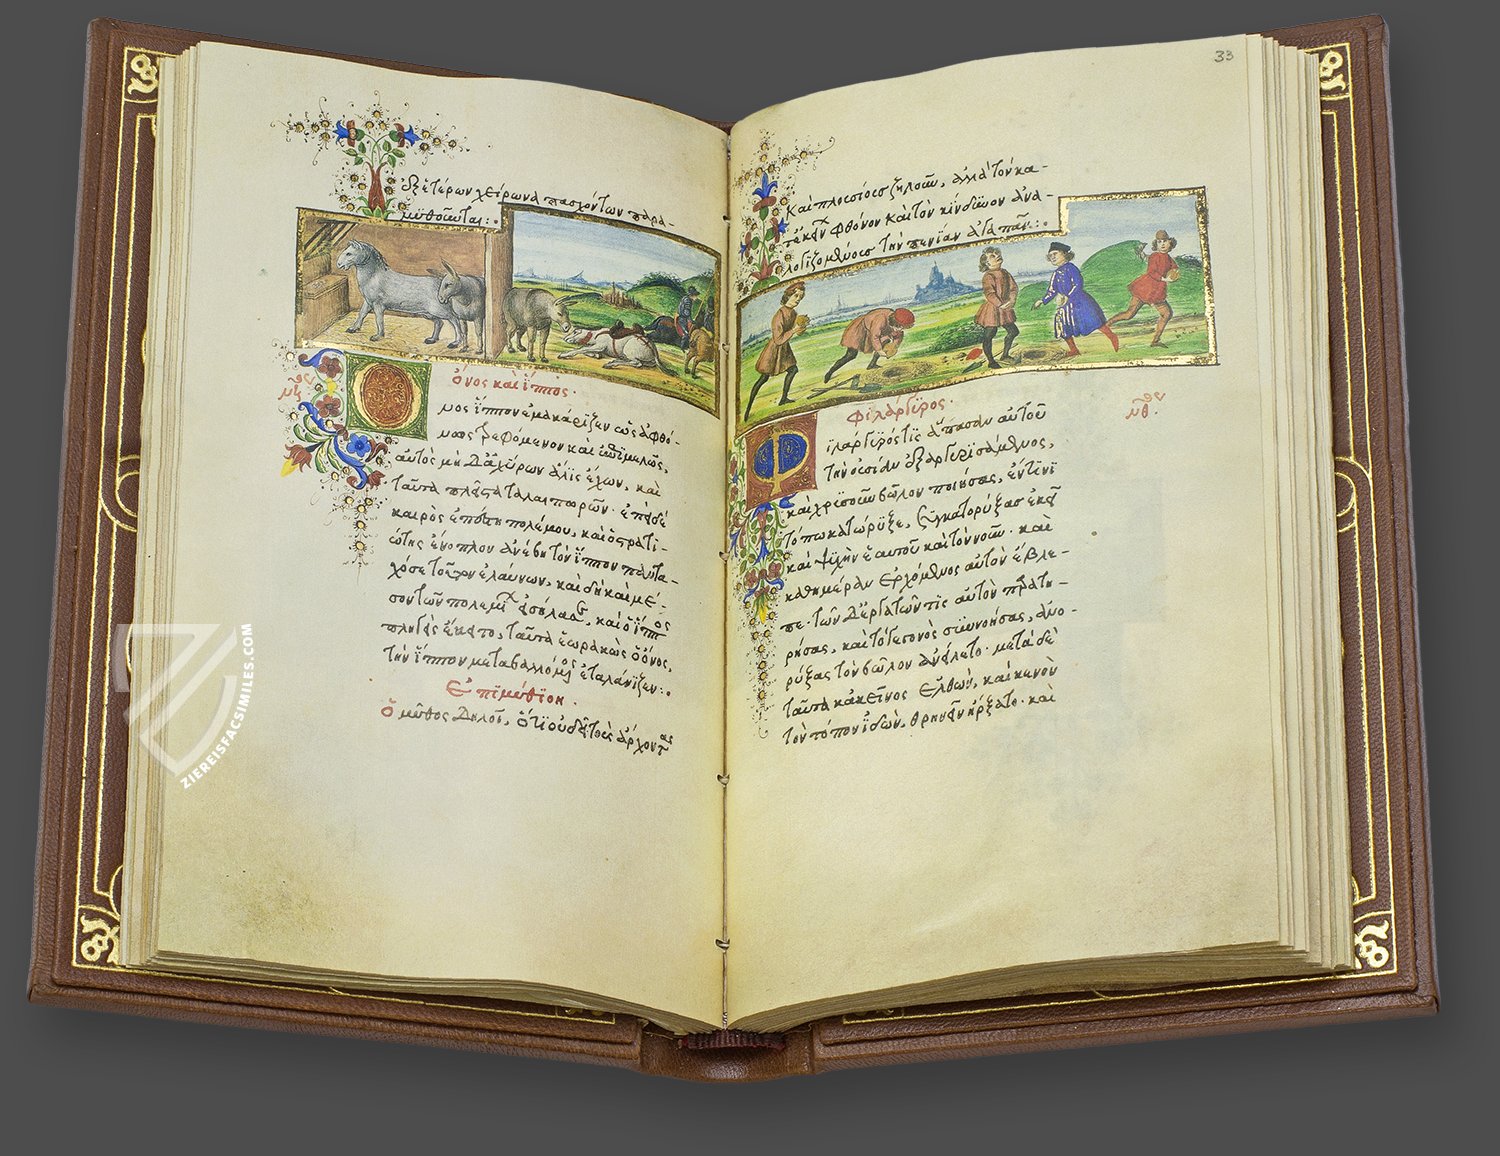 ἐξ ἑτέρων χείρονα πασχόντων παρα-
μυθοῦνται:·
Ὄνος καὶ ἵππος·
Ὄνος ἵππον ἐμακάριζεν ὡς ἀφθό-
νως τρεφόμενον καὶ ἐπιμελῶς,
αὐτὸς μηδ' ἀχύρων ἅλις ἔχων, καὶ
ταῦτα πλεῖστα ταλαιπωρῶν· ἐπεὶ δὲ
καιρὸς ἐπέστη πολέμου, καὶ ὁ στρατι-
ώτης ἔνοπλον ἀνέβη τὸν ἵππον παντα-
χόσε τοῦτον ἐλαύνων, καὶ δὴ καὶ μέ-
σον τῶν πολεμίων εἰσήλασε, καὶ ὁ ἵππος
πληγεὶς ἔκειτο, ταῦτα ἑωρακὼς ὁ ὄνος,
τὸν ἵππον μεταβαλλόμενος ἐταλάνιζεν:·
Ἐπιμύθιον·
Ὁ μῦθος δηλοῖ, ὅτι οὐ δεῖ τοὺς ἄρχοντας
33
καὶ πλουσίους ζηλοῦν, ἀλλὰ τὸν κα-
τ' ἐκείνων φθόνον καὶ τὸν κίνδυνον ἀνα-
λογιζομένους τὴν πενίαν ἀγαπᾶν:·
Φιλάργυρος·
Φιλάργυρός τις ἅπασαν αὐτοῦ
τὴν οὐσίαν ἐξαργυρισάμενος,
καὶ χρυσοῦν βῶλον ποιήσας, ἔν τινι
τόπῳ κατώρυξε, συγκατορύξας ἐκεῖ
καὶ ψυχὴν ἑαυτοῦ καὶ τὸν νοῦν· καὶ
καθημέραν ἐρχόμενος αὐτὸν ἔβλε-
πε· τῶν δ' ἐργατῶν τις αὐτὸν παρατη-
ρήσας, καὶ τὸ γεγονὸς συννοήσας, ἀνο-
ρύξας τὸν βῶλον ἀνείλετο· μετὰ δὲ
ταῦτα κἀκεῖνος ἐλθὼν, καὶ κενὸν
τὸν τόπον ἰδὼν, θρηνεῖν ἤρξατο· καὶ
ZIEREISFACSIMILES.COM